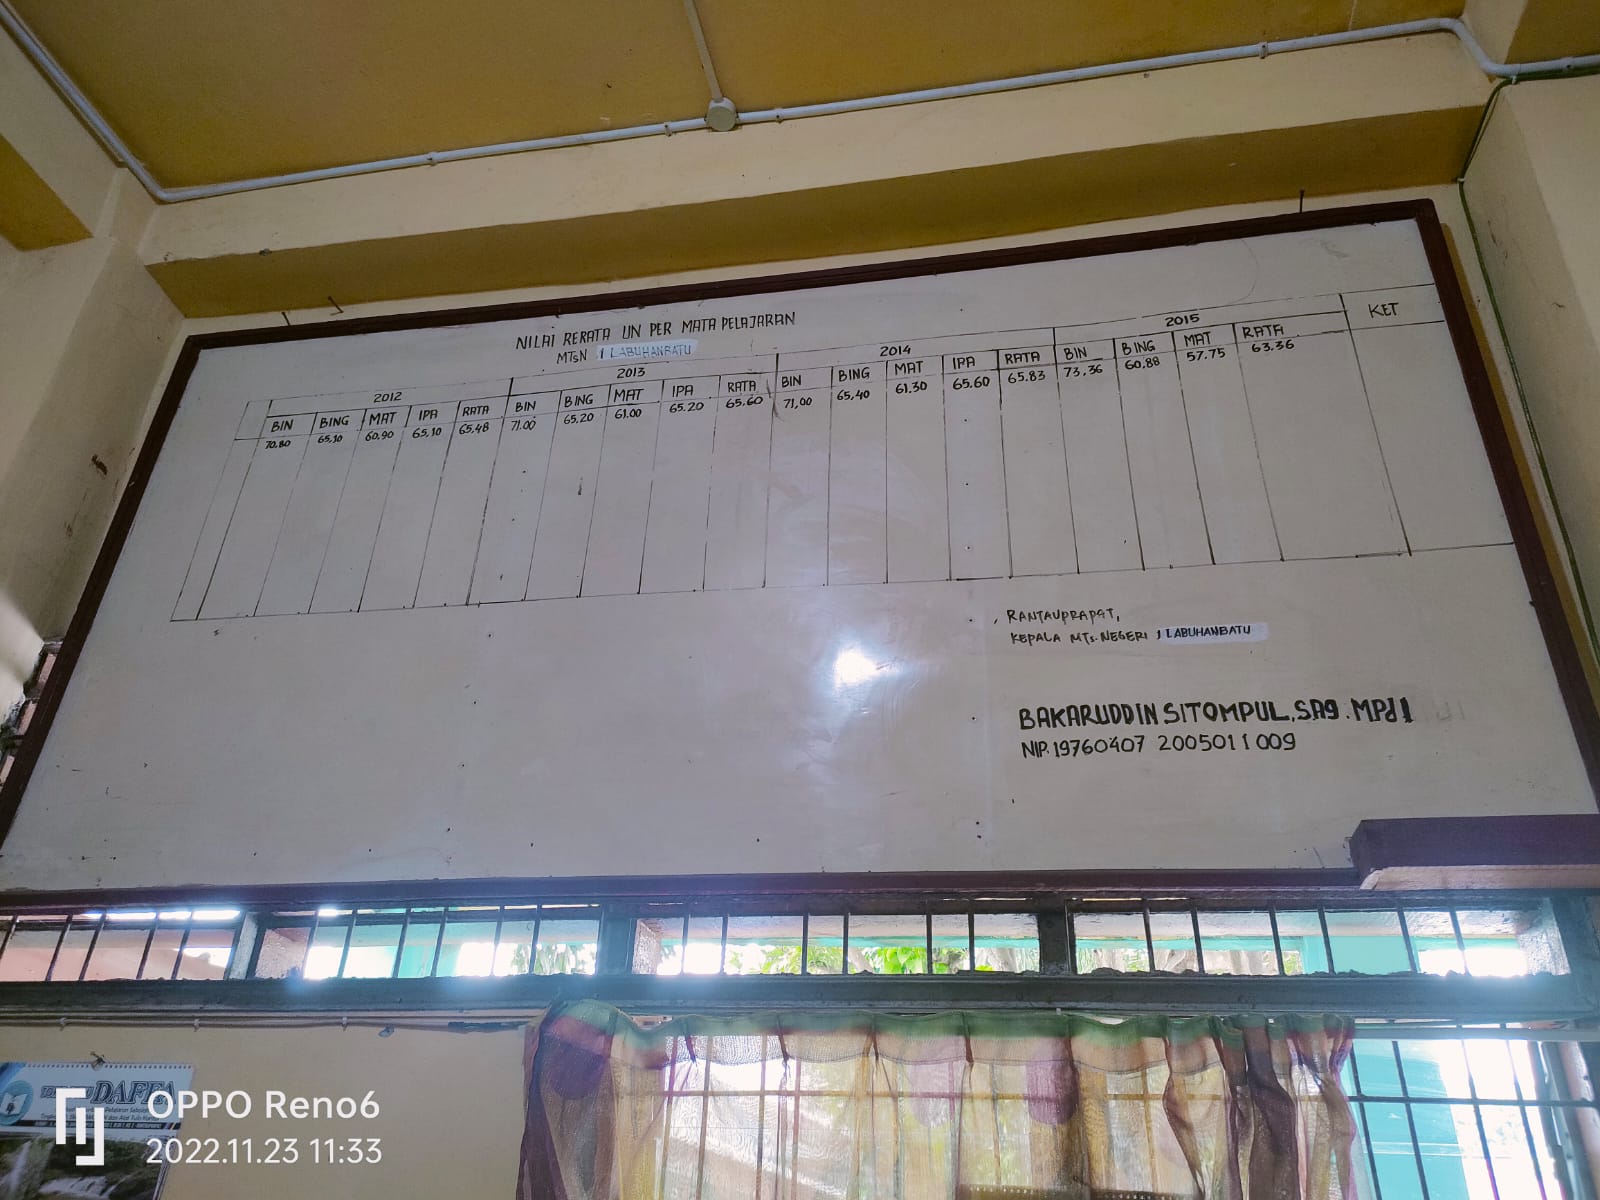 NILAI RERATA UN PER MATA PELAJARAN
MTsN 1 LABUHANBATU
2012 2013 2014 2015 KET
BIN BING MAT IPA RATA BIN BING MAT IPA RATA BIN BING MAT IPA RATA BIN BING MAT RATA
70.80 65,10 60,90 65,10 65,48 71.00 65,20 61.00 65.20 65.60 71,00 65,40 61.30 65.60 65.83 73,36 60,88 57.75 63.36
RANTAUPRAPAT,
KEPALA MTs. NEGERI 1 LABUHANBATU
BAKARUDDIN SITOMPUL, SAg. MPd I
NIP. 19760407 2005011 009
DAFFA
OPPO Reno6
2022.11.23 11:33